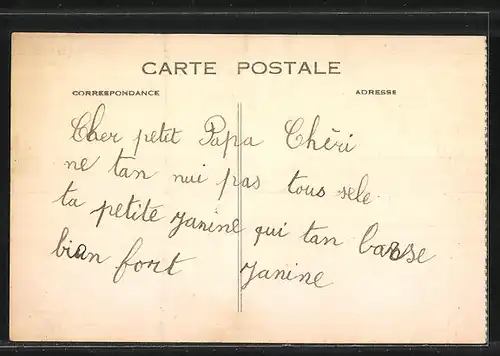 CARTE POSTALE
CORRESPONDANCE
ADRESSE
Cher petit Papa Chéri
ne tan nui pas tous sele
ta petite Janine qui tan barse
bian fort Janine